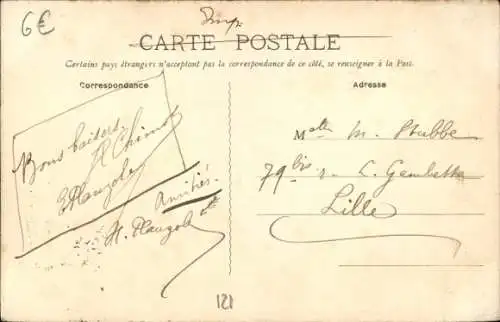 6€
CARTE POSTALE
Certains pays étrangers n'acceptant pas la correspondance de ce côté, se renseigner à la Post.
Correspondance
Bons baisers
Amitiés
H.
Adresse
Melle M. Stubbe
79 bis r. L. Gambetta
Lille
121